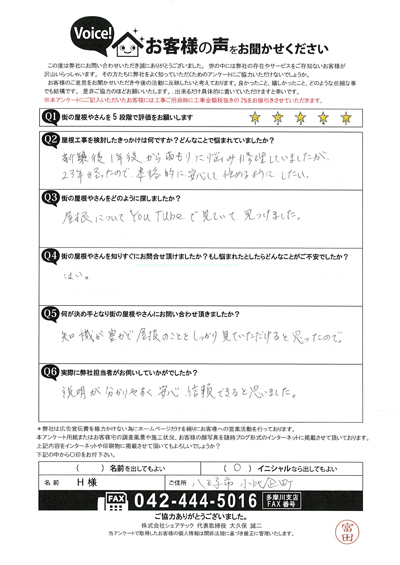 Voice!
お客様の声をお聞かせください
この度は弊社にお問い合わせいただき誠にありがとうございました。世の中には弊社の存在やサービスをご存知ないお客様が
沢山いらっしゃいます。その方たちに弊社をよく知っていただだためのアンケートにご協力いただけないでしょうか。
お客様のご意見をお聞かせいただき今後の活動に反映したいと考えております。良かったこと、嬉しかったこと、どのような些細な事
でも結構です。是非ご協力のほどお願いいたします。出来るだけ具体的に書いていただけますと幸いです。
※本アンケートにご記入いただいたお客様には工事ご完成時に工事金額税抜きの2%をお値引きさせていただきます。
Q1 街の屋根やさんを5段階で評価をお願いします
Q2 屋根工事を検討したきっかけは何ですか?どんなことで悩まれていましたか?
新築後1年後から雨もりに悩み修理していましたが、
23年経ったので、本格的に安心して住めるようにしたい。
Q3 街の屋根やさんをどのように探しましたか?
屋根についてYouTubeで見ていて見つけました。
Q4 街の屋根やさんを知りすぐにお問合せ頂けましたか?もし悩まれたとしたらどんなことがご不安でしたか?
はい。
Q5 何が決め手となり街の屋根やさんにお問い合わせ頂きましたか?
知識が豊かで屋根のことをしっかり見ていただけると思ったので。
Q6 実際に弊社担当者がお伺いしていかがでしたか?
説明が分かりやすく、安心信頼できると思いました。
*弊社は広告宣伝費を極力かけない為にホームページだけを頼りにお客様への営業活動を行っております。
本アンケート用紙またはお客様宅の調査風景や施工状況、お客様の顔写真を随時ブログ形式のインターネットに掲載させて頂いております。
上記内容をインターネットや印刷物に掲載させて頂いてもよろしいでしょうか?
下記の中から○印をお付け下さい。
( )名前を出してもよい (○)イニシャルなら出してもよい
名前 H 様 ご住所 八王子市 小比企町
FAX 042-444-5016 多摩川支店 FAX番号
ご協力ありがとうございました。
株式会社シェアテック 代表取締役 大久保 誠二
当アンケートで取得したお客様の個人情報は関係法規に基づき厳正に管理いたします。
富田